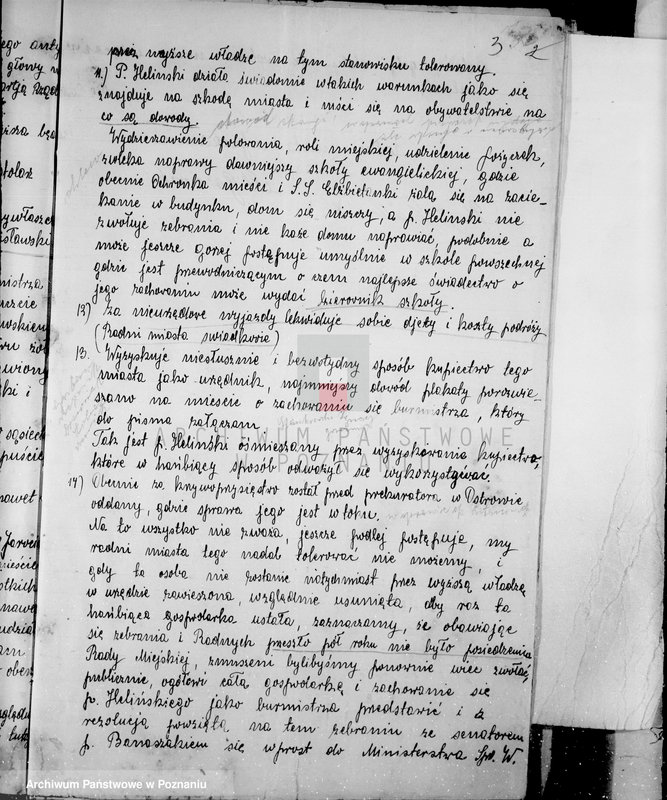 3 2
przez wyższe władze na tym stanowisku tolerowany.
11.) P. Heliński działa świadomie w takich warunkach jako się
znajduje na szkodę miasta i mści się na obywatelstwie, na
co są dowody.
Wydzierżawienie polowania, roli miejskiej, udzielenie pożyczek,
zwleka naprawy dawniejszy szkoły ewangielickiej, gdzie
obecnie Ochronka mieści i S.S. Elżbietanki żalą się na zacie-
kanie w budynku, dom się niszczy, a p. Heliński nie
zwołuje zebrania i nie każe domu naprawiać, podobnie a
może jeszcze gorzej postępuje umyślnie w szkole powszechnej
gdzie jest przewodniczącym o czem najlepsze świadectwo o
jego zachowaniu może wydać kierownik szkoły.
12) za nieurzędowe wyjazdy likwiduje sobie djety i koszty podróży
(Radni miasta świadkowie)
13. Wyzyskuje niesłusznie i bezwstydny sposób kupiectwo tego
miasta jako urzędnik, najmniejszy dowód plakaty porozwie-
szano na mieście o zachowaniu się burmistrza, który
do pisma załączam.
Tak jest p. Heliński ośmieszany przez wyzyskowania kupiectwa,
które w hańbiący sposób odważył się wykorzystywać.
14) Obecnie za krzywoprzysięstwo został pred prekuratora w Ostrowie
oddany, gdzie sprawa jego jest w toku.
Na to wszystko nie zważa, jeszcze podlej postępuje, my
radni miasta tego nadal tolerować nie możemy, i
gdy ta osoba nie zostanie natychmiast przez wyższą władzę
w urzędzie zawieszona, względnie usunięta, aby raz ta
hańbiąca gospodarka ustała, zaznaczamy, że obawiając
się zebrania i Radnych przeszło pół roku nie było posiedzenia
Rady Miejskiej, zmuszeni bylibyśmy ponownie wiec zwołać,
publicznie, ogółowi całą gospodarkę i zachowanie się
p. Helińskiego jako burmistrza przedstawić i z
rezolucją powziętą na tem zebraniu ze senatorem
p. Banaszakiem się wprost do Ministerstwa Spr. W.
ARCHIWUM PAŃSTWOWE
W POZNANIU
Archiwum Państwowe w Poznaniu